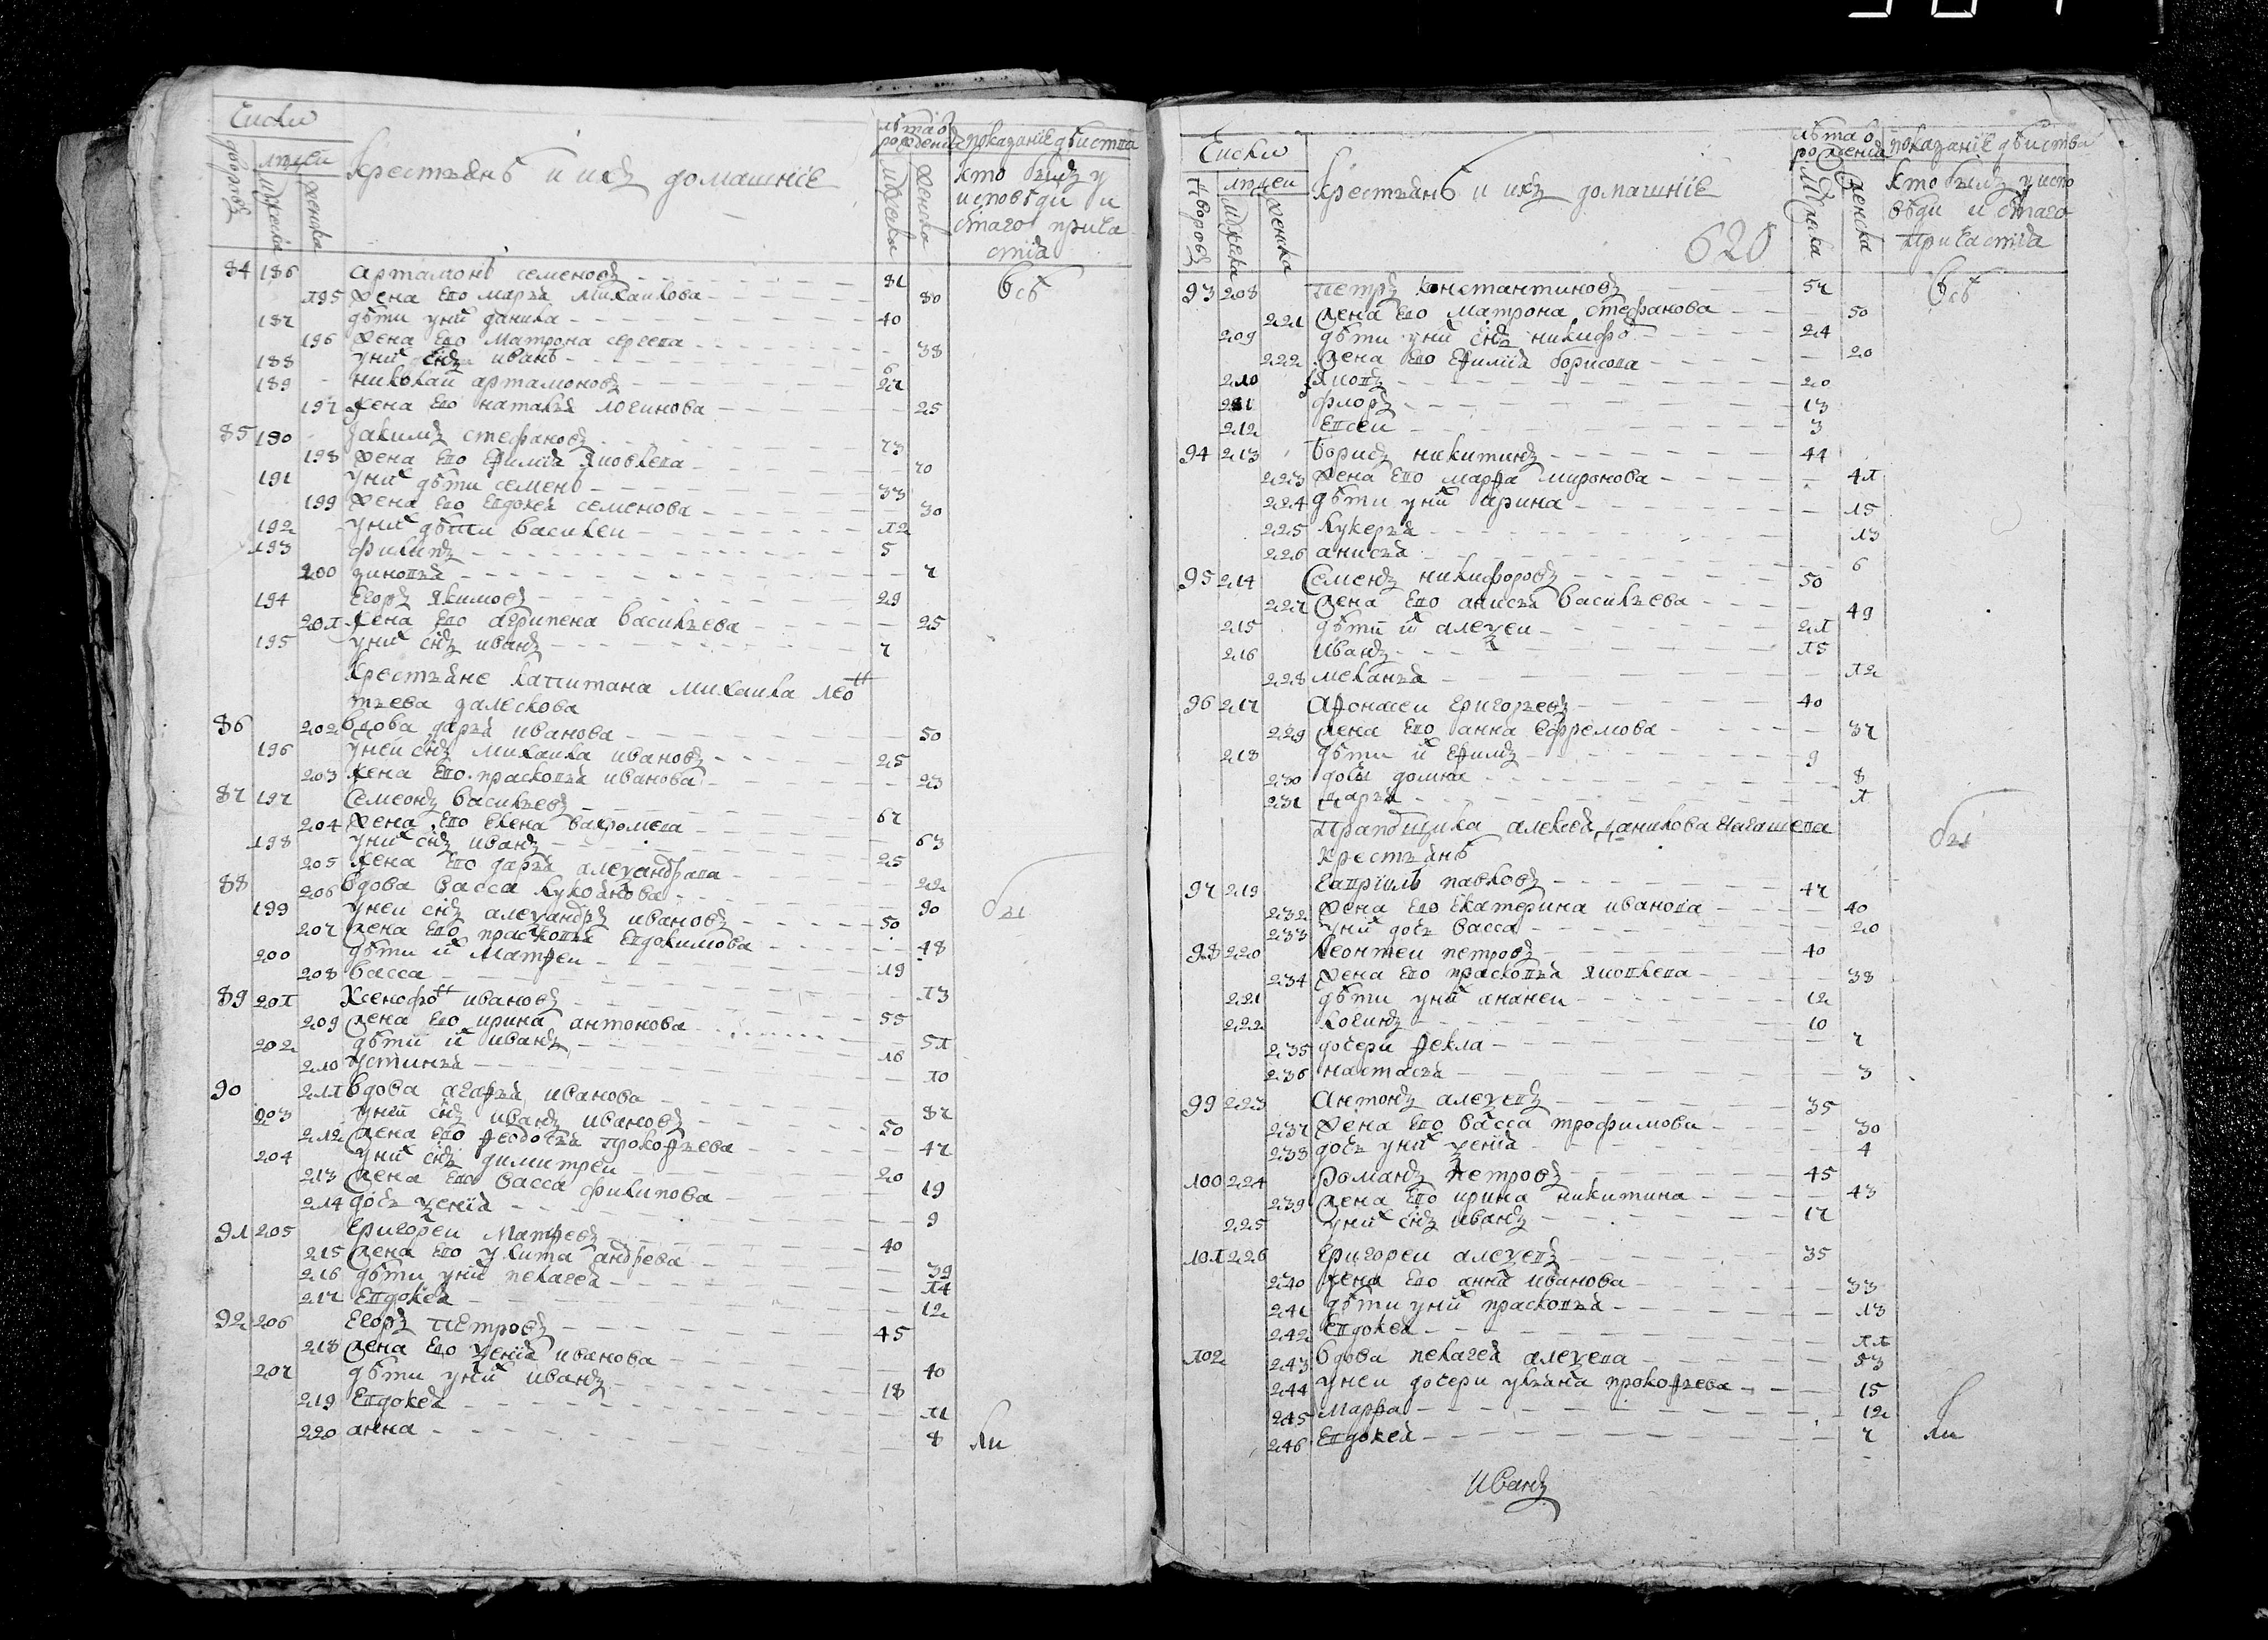 Числы
дворовъ
людей
мужеска
женска
крестьянѣ и ихъ домашнїе
лѣта ѿ рожденїѧ
мужеска
женска
показанїе дѣиства
кто былъ у
исповѣди и
с҃таго прича
стїѧ
84 186 артамонъ семеновъ 81 Всѣ
195 жена ево марьѧ михаилова 80
187 дѣти у них данила 40
196 жена ево матрона сергеева 38
188 у них с҃нъ иванъ 6
189 николаи артамоновъ 27
197 жена ево натальѧ логинова 25
85 190 Ѧкимъ стефановъ 73
198 жена ево Ефимїѧ Ѧковлева 70
191 у них дѣти семенъ 33
199 жена ево Евдокеѧ семенова 30
192 у них дѣти василеи 12
193 филипъ 5
200 зиновьѧ 7
194 Егоръ Ѧкимовъ 29
201 жена ево агрипена васильева 25
195 у них с҃нъ иванъ 7
Крестьѧне капитана михаила лео н
тьева залескова
86 202 вдова дарьѧ иванова 50
196 у неи с҃нъ михаила ивановъ 25
203 жена ево прасковьѧ иванова 23
87 197 Семеонъ васильевъ 67
204 жена ево елена вахромева 63
198 у них с҃нъ иванъ 25
205 жена ево дарьѧ алеѯандрава 22
88 206 вдова васса лукоѧнова 90
199 у неи с҃нъ алеѯандръ ивановъ 50
207 жена ево прасковьѧ Евдокимова 48
200 дѣти их матѳеи 19
208 васса 13
89 201 Ксенофон ивановъ 55
209 жена ево ирина антонова 51
202 дѣти их иванъ 16
210 устиньѧ 10
90 211 вдова агаѳьѧ иванова 87
203 у неи с҃нъ иванъ ивановъ 50
212 жена ево ѳеодосьѧ прокоѳьева 47
204 у них с҃нъ димитреи 20
213 жена ево васса филипова 19
214 дочь ѯенїѧ 9
91 205 Григореи матѳевъ 40
215 жена ево улита андрева 39
216 дѣти у них пелагеѧ 14
217 Евдокеѧ 12
92 206 Егоръ петровъ 45
218 жена ево ѯенїѧ иванова 40
207 дѣти у них иванъ 18
219 Евдокеѧ 11
220 анна 8 ли
Числы
дворовъ
людей
мужеска
женска
крестьянѣ и ихъ домашнїе
620
лѣта ѿ рожденїѧ
мужеска
женска
показанїе дѣиства
кто былъ у испо
вѣди и с҃таго
причастїѧ
93 208 петръ константиновъ 57 Всѣ
221 жена ево матрона стефанова 50
209 дѣти у них с҃нъ никифо 24
222 жена ево Ефимїѧ борисова 20
210 Ѧковъ 20
211 флоръ 13
212 Евсеи 3
94 213 борисъ никитинъ 44
223 жена ево марѳа миронова 41
224 дѣти у них арина 15
225 лукерьѧ 13
226 анисьѧ 6
95 214 Семенъ никифоровъ 50
227 жена ево анисьѧ васильева 49
215 дѣти их алеѯеи 21
216 Иванъ 15
228 меланьѧ 12
96 217 Аѳонасеи григорьевъ 40
229 жена ево анна Ефремова 37
218 дѣти их Ефимъ 9
230 дочь домна 8
231 дарьѧ 1
Прапорщика алексеѧ данилова
крестьѧнѣ
97 219 гаврїилъ павловъ 47
232 жена ево Екатерина иванова 40
233 у них дочь васса 20
98 220 Леонтеи петровъ 40
234 жена ево прасковьѧ Ѧковлева 38
221 дѣти у них ананеи 12
222 логинъ 10
235 дочери ѳекла 7
236 настасьѧ 3
99 223 Антонъ алеѯевъ 35
237 жена ево васса трофимова 30
238 дочь у них ѯенїѧ 4
100 224 романъ петровъ 45
239 жена ево ирина никитина 43
225 у них с҃нъ иванъ 17
101 226 Григореи алеѯевъ 35
240 жена ево анна иванова 33
241 дѣти у них прасковьѧ 13
242 Евдокеѧ 11
102 243 вдова пелагеѧ алеѯева 53
244 у неи дочери ульѧна прокоѳьева 15
245 марѳа 12
246 Евдокеѧ 7 ли
Иванъ